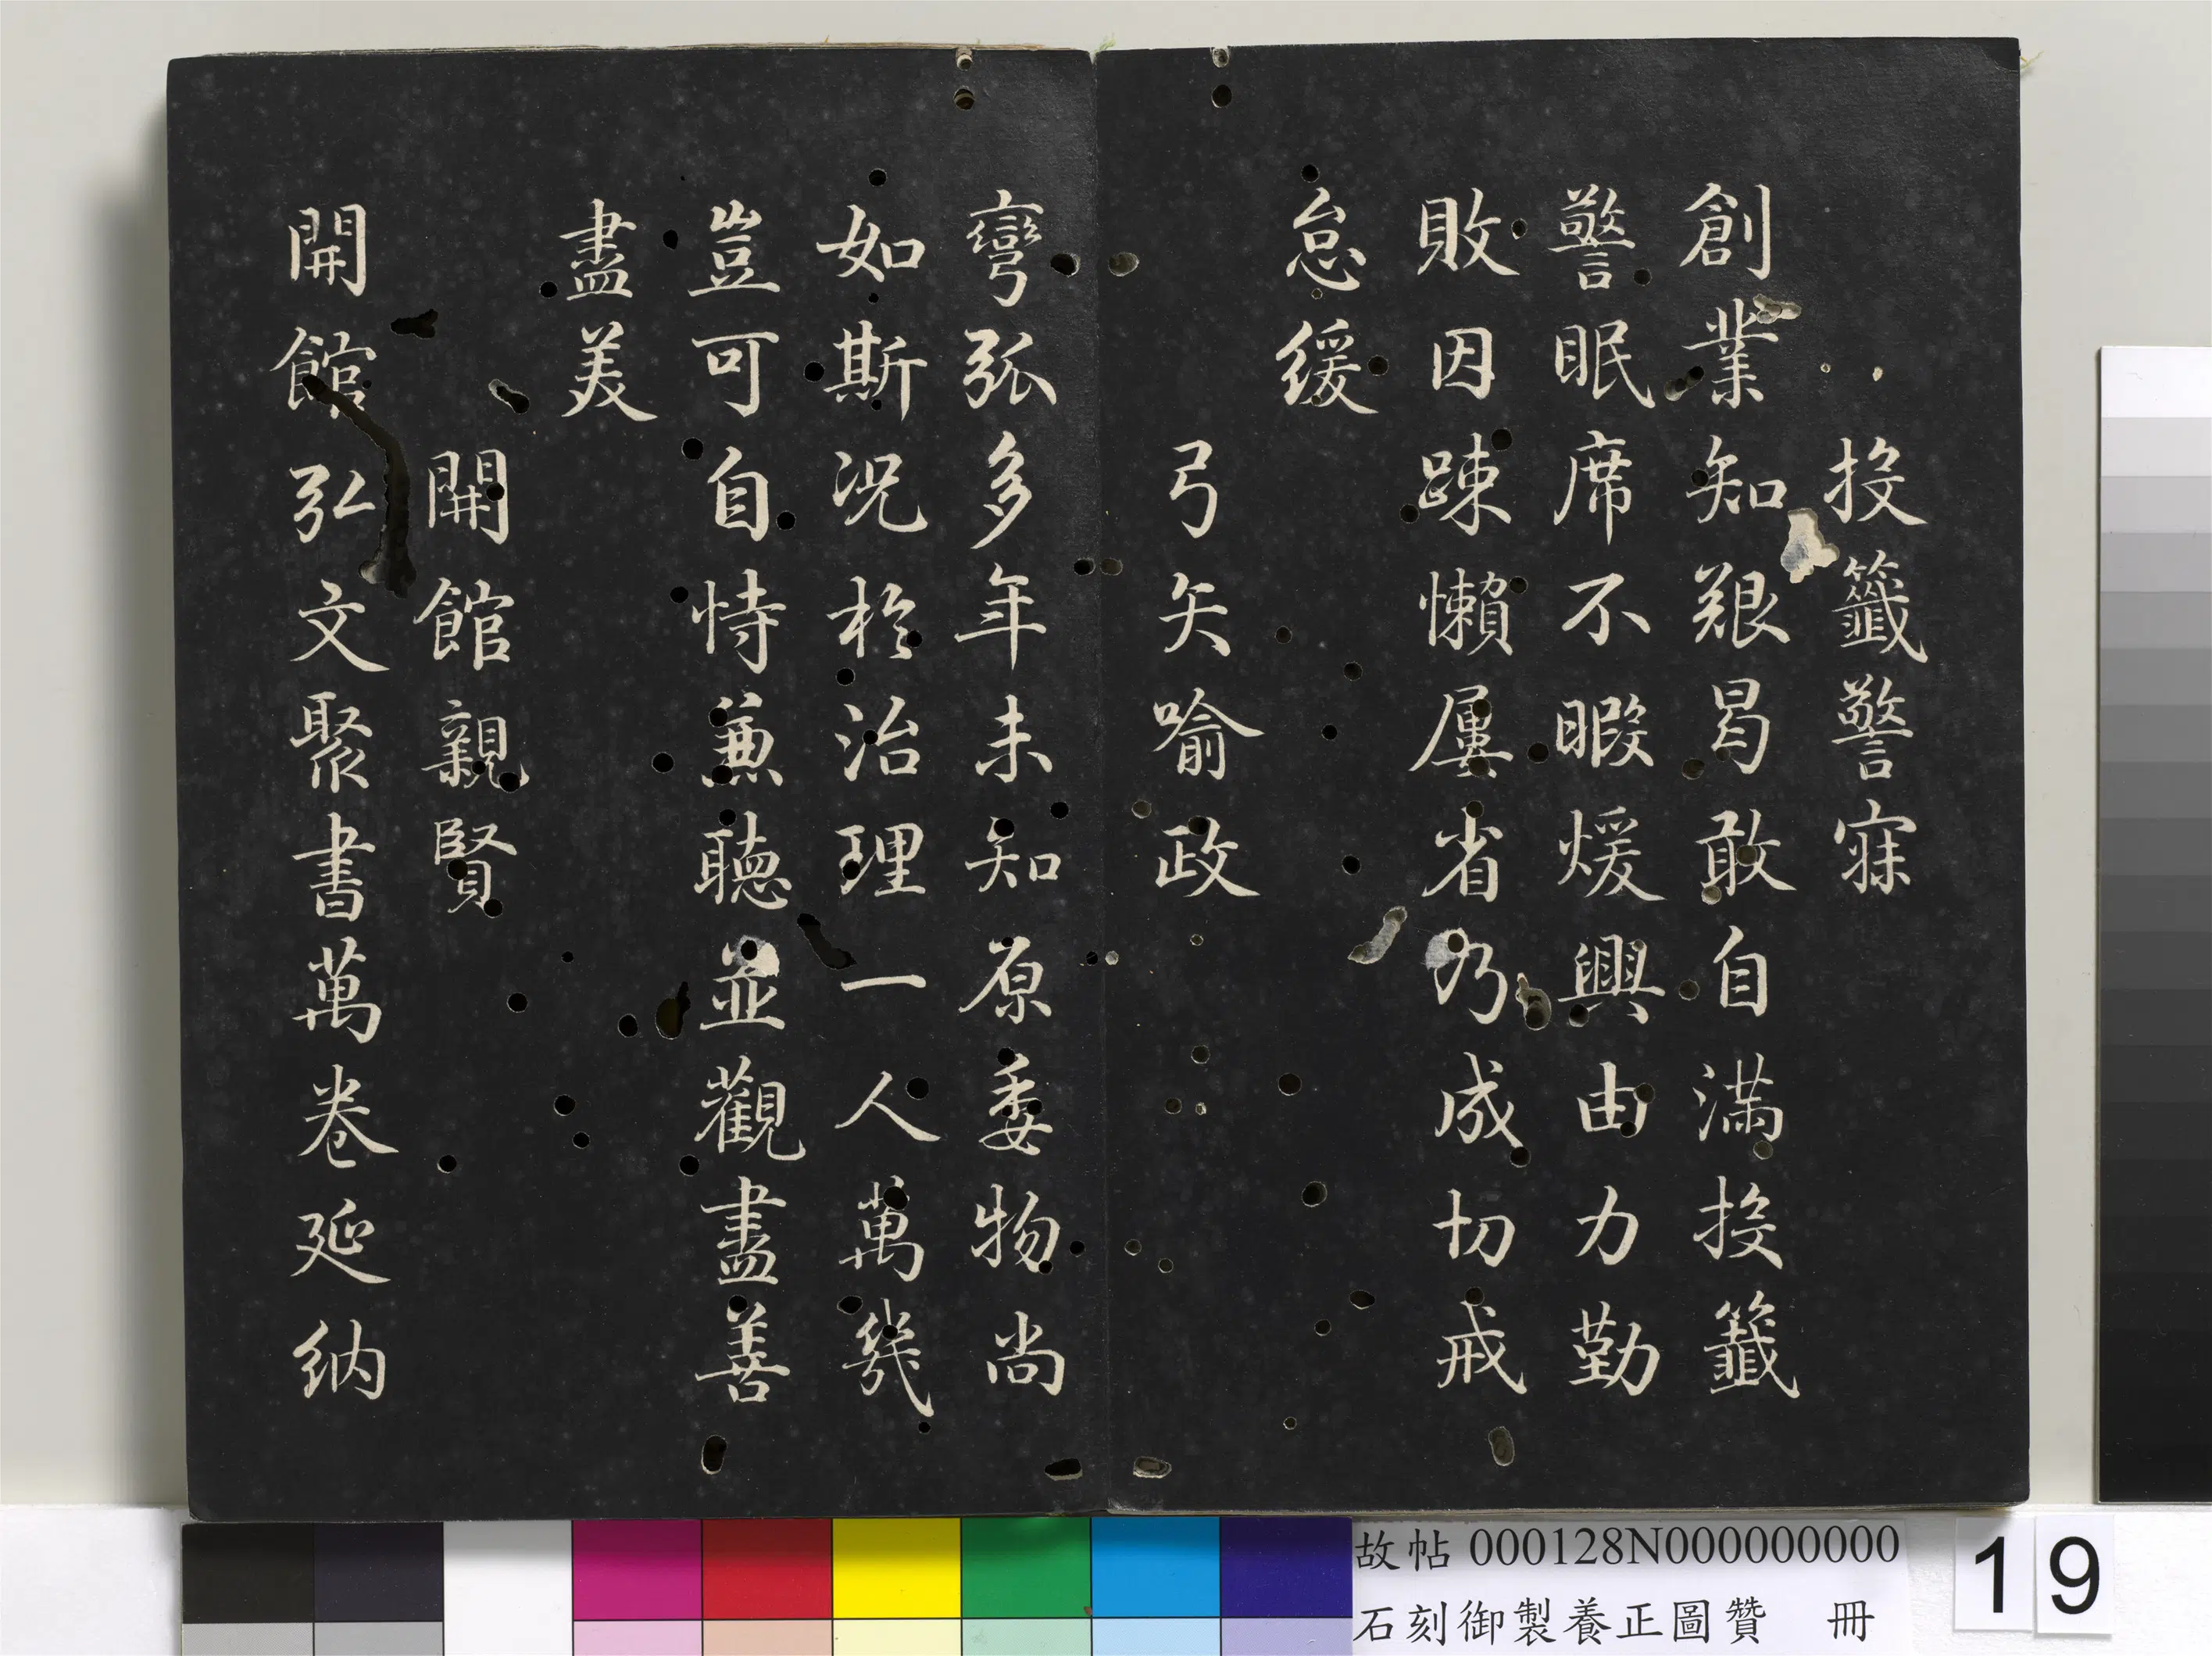 投籤警寐
創業知艱曷敢自滿投籤
警眠席不暇煖興由力勤
敗因踈懶屢省乃成切戒
怠緩
弓矢喻政
彎弧多年未知原委物尚
如斯况於治理一人萬幾
豈可自恃兼聽並觀盡善
盡美
開館親賢
開館弘文聚書萬卷延納
故帖 000128N000000000
石刻御製養正圖贊 冊
19